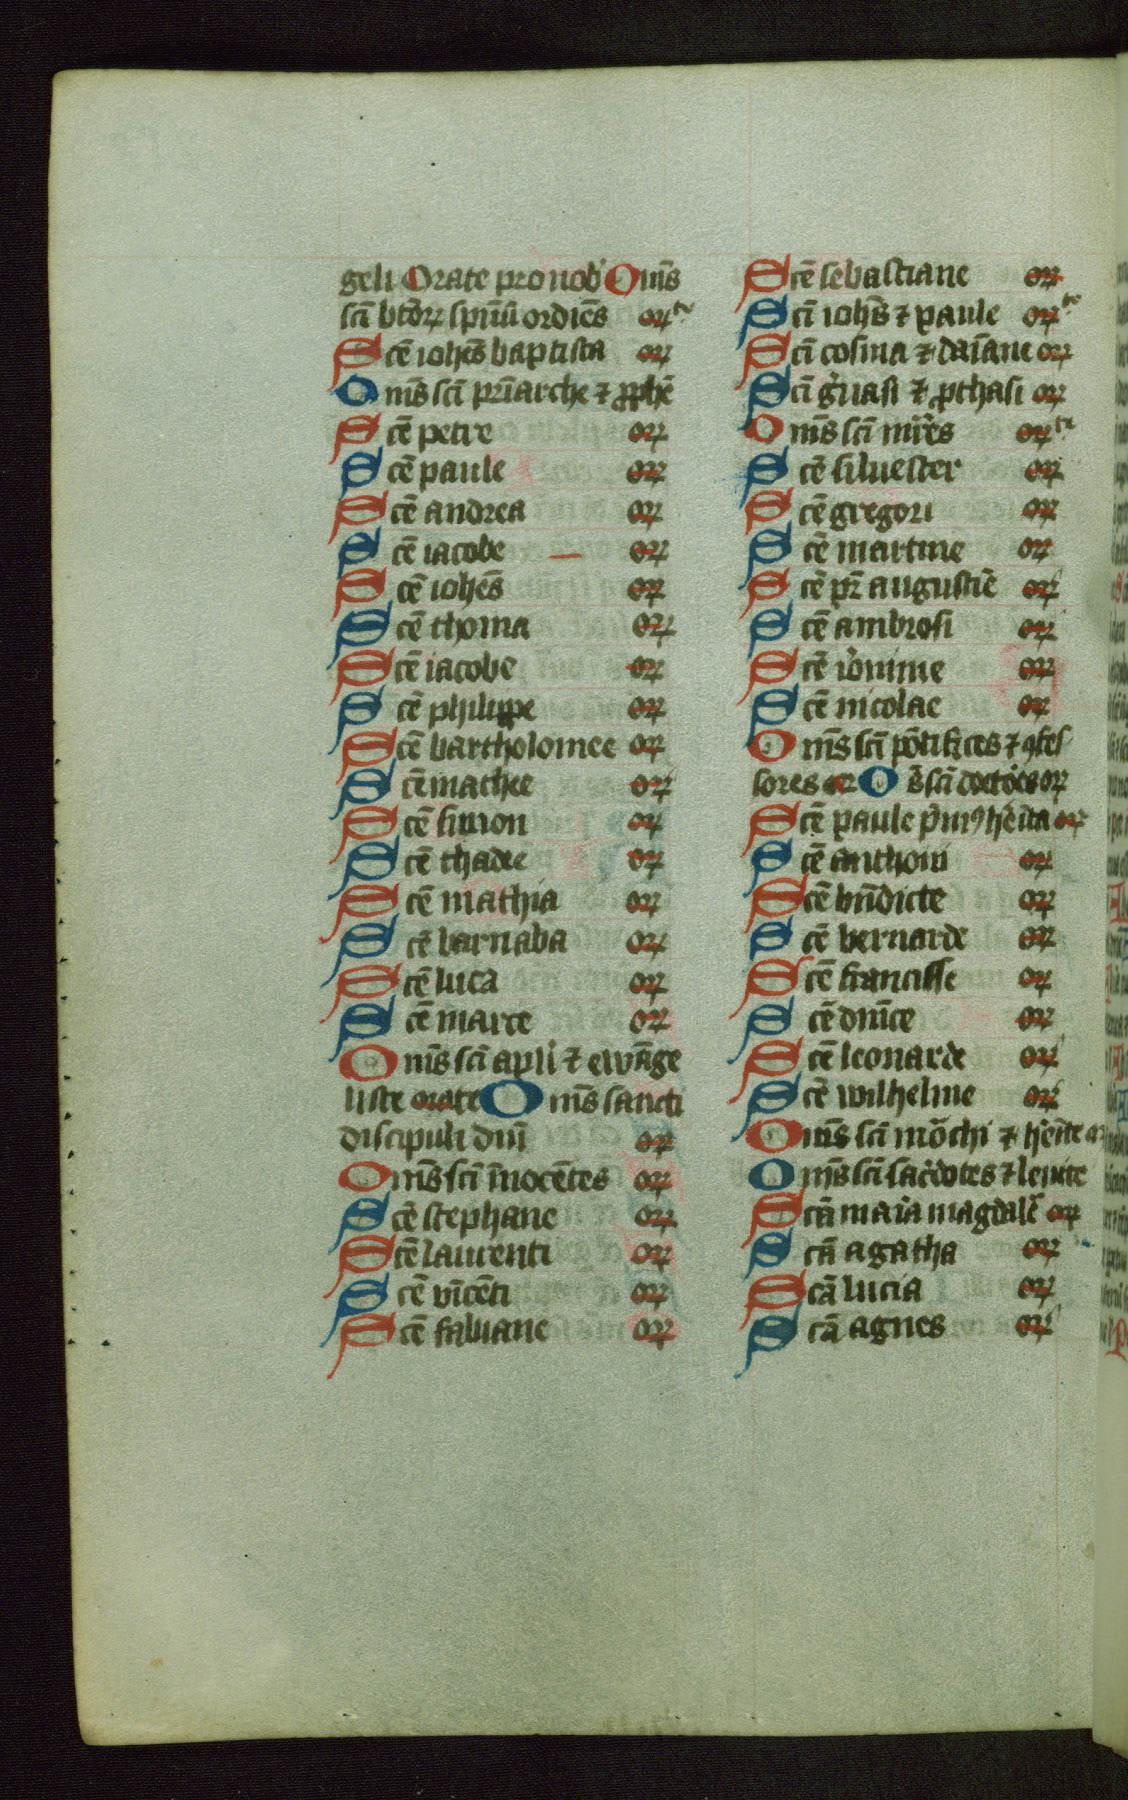 geli Orate pro nob̄ Om̄s
sc̄i btōꝝ spūū ordiēs oꝝ te
Sc̄e ioh̄es baptista oꝝ
Om̄s sc̄i pr̄iarche ⁊ ꝓph̄e
Sc̄e petre oꝝ
Sc̄e paule oꝝ
Sc̄e andrea oꝝ
Sc̄e iacobe oꝝ
Sc̄e ioh̄es oꝝ
Sc̄e thoma oꝝ
Sc̄e iacobe oꝝ
Sc̄e philippe oꝝ
Sc̄e bartholomee oꝝ
Sc̄e mathee oꝝ
Sc̄e simon oꝝ
Sc̄e thadee oꝝ
Sc̄e mathia oꝝ
Sc̄e barnaba oꝝ
Sc̄e luca oꝝ
Sc̄e marce oꝝ
Om̄s sc̄i apl̄i ⁊ ewāge
liste orate Om̄s sancti
discipuli dn̄i oꝝ
Om̄s sc̄i īnocētes oꝝ
Sc̄e stephane oꝝ
Sc̄e laurenti oꝝ
Sc̄e vīcēti oꝝ
Sc̄e fabiane oꝝ
Sc̄e sebastiane oꝝ
Sc̄i ioh̄s ⁊ paule oꝝ te
Sc̄i cosma ⁊ damiane oꝝ
Sc̄i gͥuasi ⁊ ꝓthasi oꝝ
Om̄s sc̄i mr̄es oꝝ te
Sc̄e siluester oꝝ
Sc̄e gregori oꝝ
Sc̄e martine oꝝ
Sc̄e pr̄ augustīe oꝝ
Sc̄e ambrosi oꝝ
Sc̄e ieronime oꝝ
Sc̄e nicolae oꝝ
Om̄s sc̄i pōtifices ⁊ ꝯfes
sores or Os̄ sc̄i doctōes oꝝ
Sc̄e paule p̄mꝰ h̄eita oꝝ
Sc̄e anthoni oꝝ
Sc̄e bn̄dicte oꝝ
Sc̄e bernarde oꝝ
Sc̄e francisse oꝝ
Sc̄e dn̄ice oꝝ
Sc̄e leonarde oꝝ
Sc̄e wilhelme oꝝ
Om̄s sc̄i mōchi ⁊ h̄eīte or
Om̄s sc̄i sac̄dotes ⁊ leuite
Sc̄a maīa magdal̄e oꝝ
Sc̄a agatha oꝝ
Sc̄a lucia oꝝ
Sc̄a agnes oꝝ